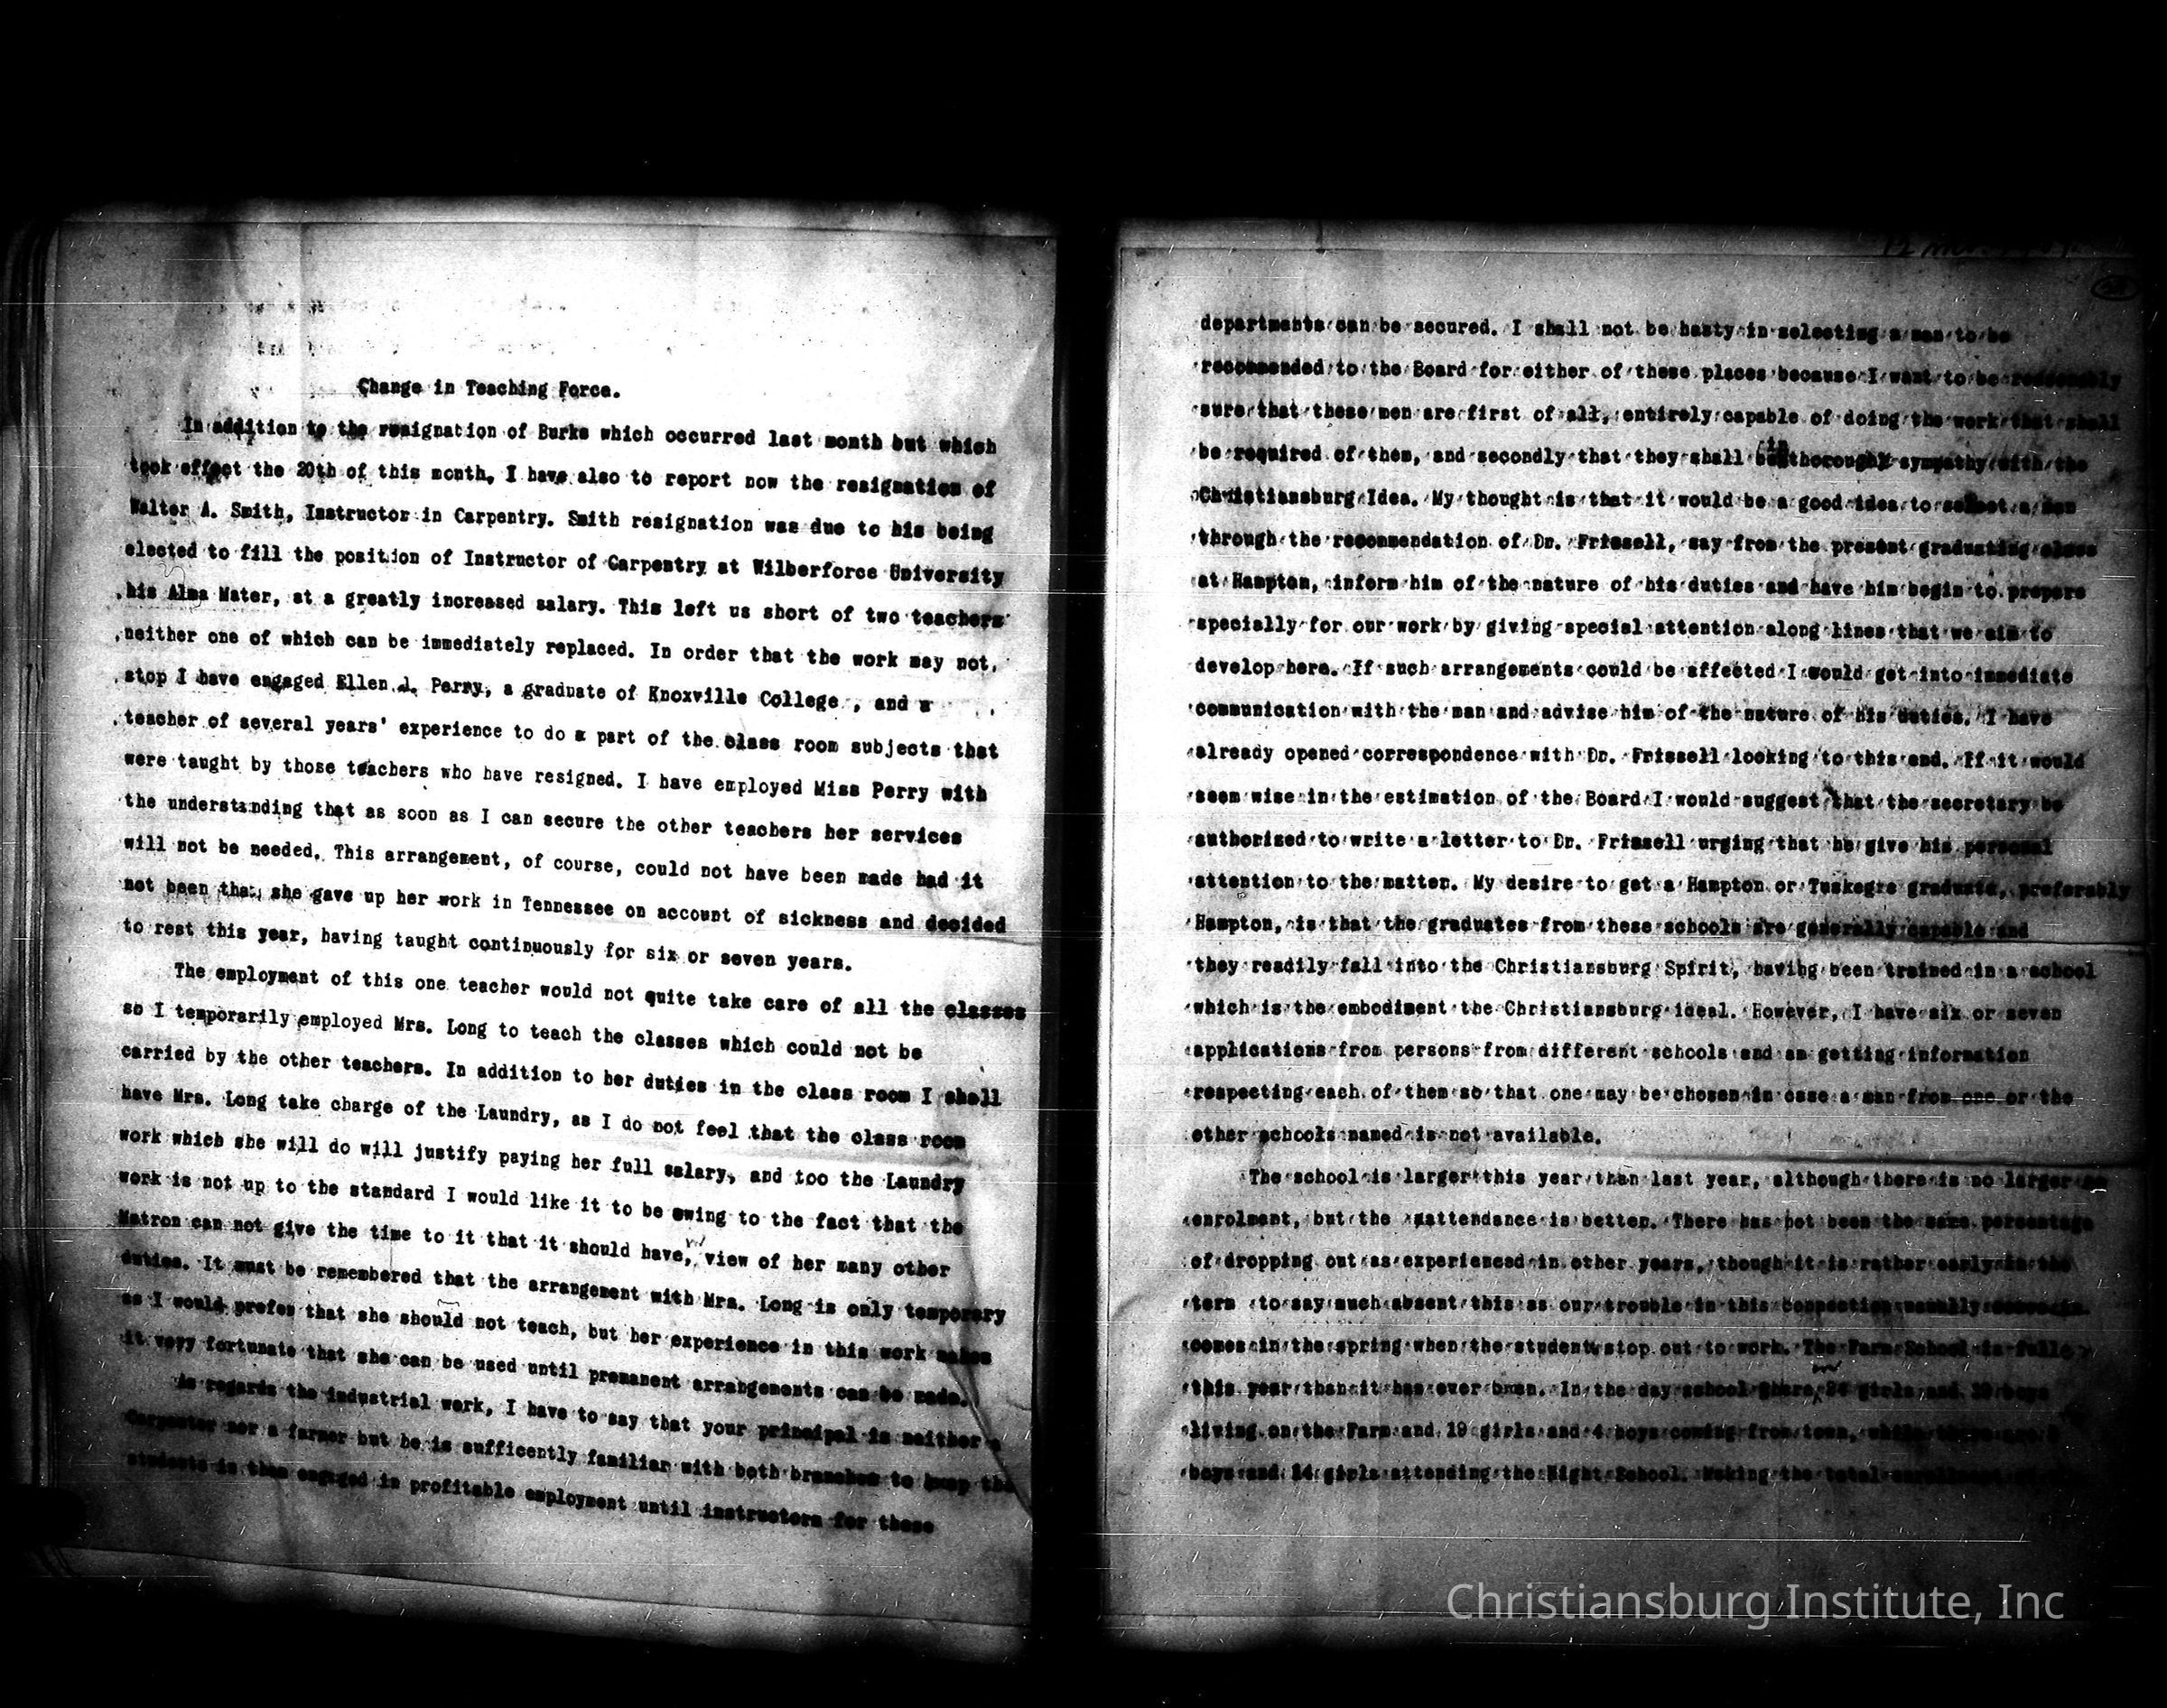 Change in Teaching Force.
In addition to the resignation of Burks which occurred last month but which
took effect the 20th of this month, I have also to report now the resignation of
Walter A. Smith, Instructor in Carpentry. Smith resignation was due to his being
elected to fill the position of Instructor of Carpentry at Wilberforce University
his Alma Mater, at a greatly increased salary. This left us short of two teachers
neither one of which can be immediately replaced. In order that the work may not,
stop I have engaged Ellen J. Perry, a graduate of Knoxville College , and a
teacher of several years' experience to do a part of the class room subjects that
were taught by those teachers who have resigned. I have employed Miss Perry with
the understanding that as soon as I can secure the other teachers her services
will not be needed. This arrangement, of course, could not have been made had it
not been that she gave up her work in Tennessee on account of sickness and decided
to rest this year, having taught continuously for six or seven years.
The employment of this one teacher would not quite take care of all the classes
so I temporarily employed Mrs. Long to teach the classes which could not be
carried by the other teachers. In addition to her duties in the class room I shall
have Mrs. Long take charge of the Laundry, as I do not feel that the class room
work which she will do will justify paying her full salary, and too the Laundry
work is not up to the standard I would like it to be owing to the fact that the
Matron can not give the time to it that it should have, view of her many other
duties. It must be remembered that the arrangement with Mrs. Long is only temporary
as I would prefer that she should not teach, but her experience in this work makes
it very fortunate that she can be used until premanent arrangements can be made.
As regards the industrial work, I have to say that your principal is neither a
Carpenter nor a farmer but he is sufficently familiar with both branches to keep the
students in them engaged in profitable employment until instructors for these
departments can be secured. I shall not be hasty in selecting a man to be
recommended to the Board for either of these places because I want to be reasonably
sure that these men are first of all, entirely capable of doing the work that shall
be required of them, and secondly that they shall in thorough sympathy with the
Christiansburg Idea. My thought is that it would be a good idea to select a man
through the recommendation of Dr. Frissell, say from the present graduating class
at Hampton, inform him of the nature of his duties and have him begin to prepare
specially for our work by giving special attention along lines that we aim to
develop here. If such arrangements could be affected I would get into immediate
communication with the man and advise him of the nature of his duties. I have
already opened correspondence with Dr. Frissell looking to this end. If it would
seem wise in the estimation of the Board I would suggest that the secretary be
authorized to write a letter to Dr. Frissell urging that he give his personal
attention to the matter. My desire to get a Hampton or Tuskegee graduate, preferably
Hampton, is that the graduates from these schools are generally capable and
they readily fall into the Christiansburg Spirit, having been trained in a school
which is the embodiment the Christiansburg ideal. However, I have six or seven
applications from persons from different schools and am getting information
respecting each of them so that one may be chosen in case a man from one or the
other schools named is not available.
The school is larger this year than last year, although there is no larger
enrolment, but the attendance is better. There has not been the same percentage
of dropping out as experienced in other years, though it is rather early in the
term to say much about this as our trouble in this connection usually
comes in the spring when the students stop out to work. The Farm School is fuller
this year than it has ever been. In the day school girls and boys
living on the Farm and 19 girls and 4 boys coming from town, while
boys and 14 girls attending the Night School. Making the total
Christiansburg Institute, Inc